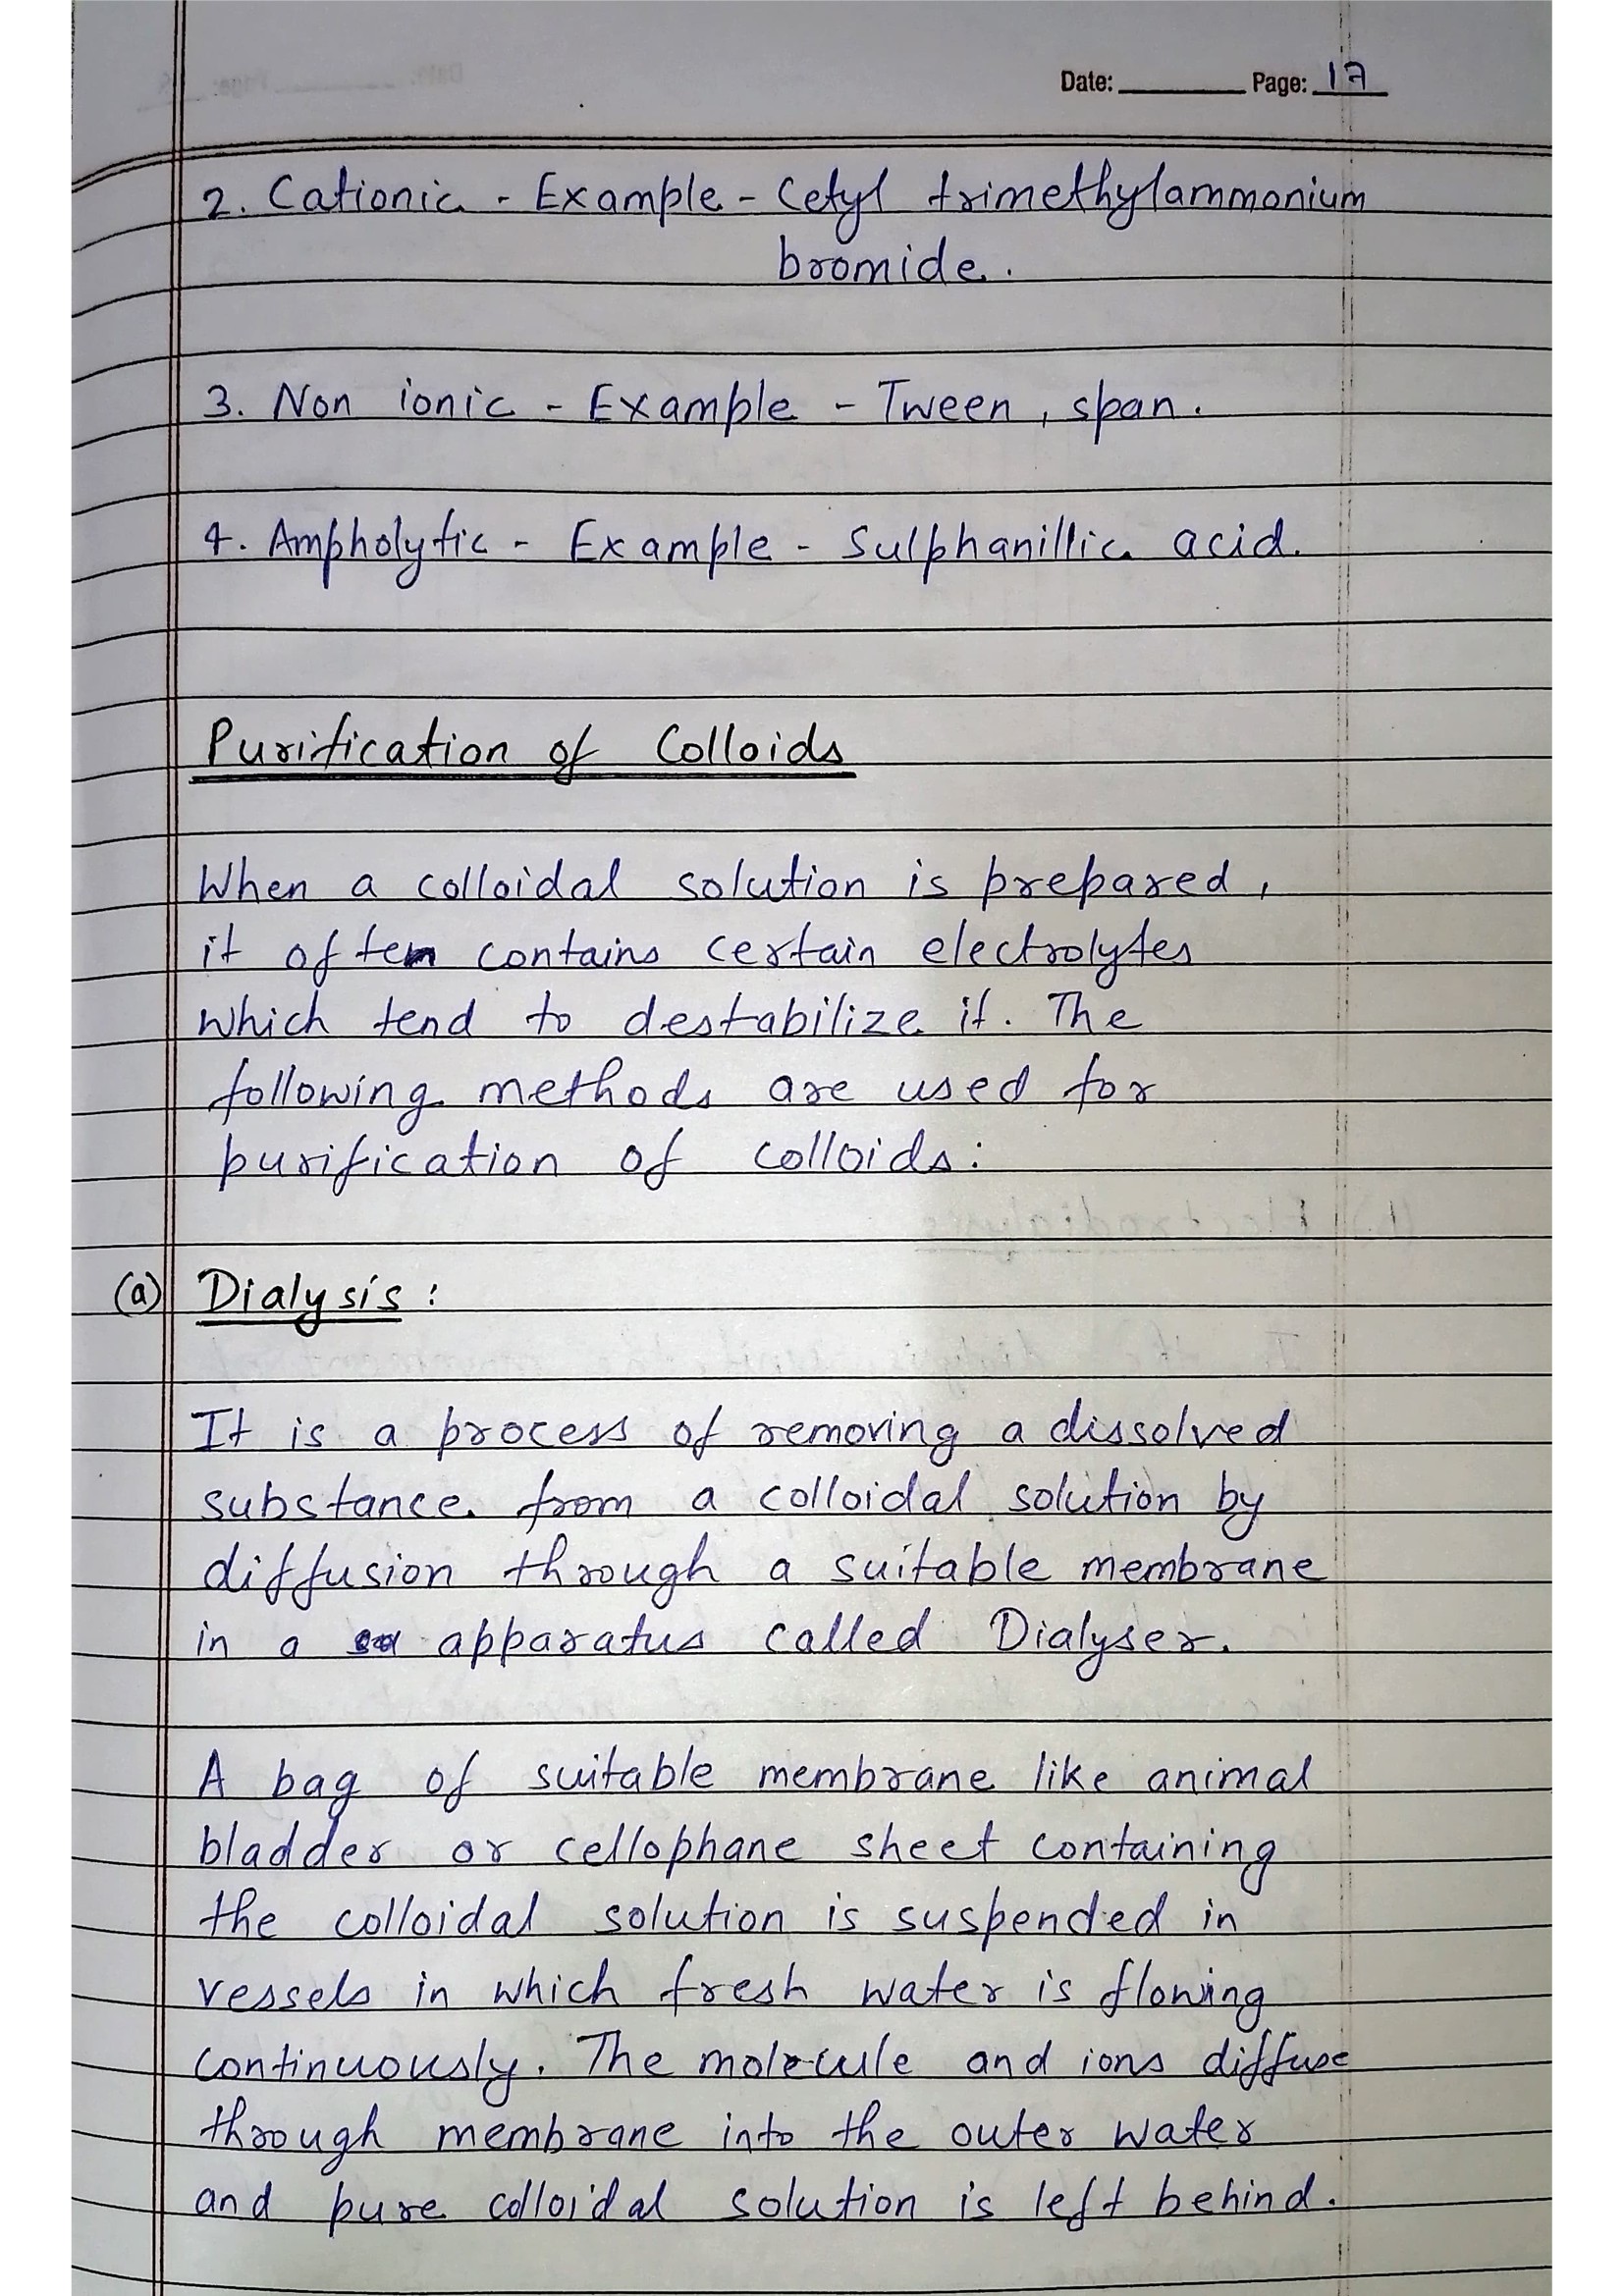 Date: Page: 17
2. Cationic - Example - Cetyl trimethylammonium
bromide.
3. Non ionic - Example - Tween, span.
4. Ampholytic - Example - Sulphanillic acid.
Purification of Colloids
When a colloidal solution is prepared,
it often contains certain electrolytes
which tend to destabilize it. The
following methods are used for
purification of colloids:
(a) Dialysis:
It is a process of removing a dissolved
substance from a colloidal solution by
diffusion through a suitable membrane
in a apparatus called Dialyser.
A bag of suitable membrane like animal
bladder or cellophane sheet containing
the colloidal solution is suspended in
vessels in which fresh water is flowing
continuously. The molecule and ions diffuse
through membrane into the outer water
and pure colloidal solution is left behind.